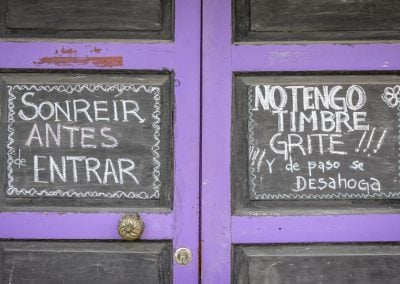 SONREIR
ANTES
de ENTRAR
NO TENGO
TIMBRE
GRITE !!!
¡¡¡ Y de paso se
DESAHOGA